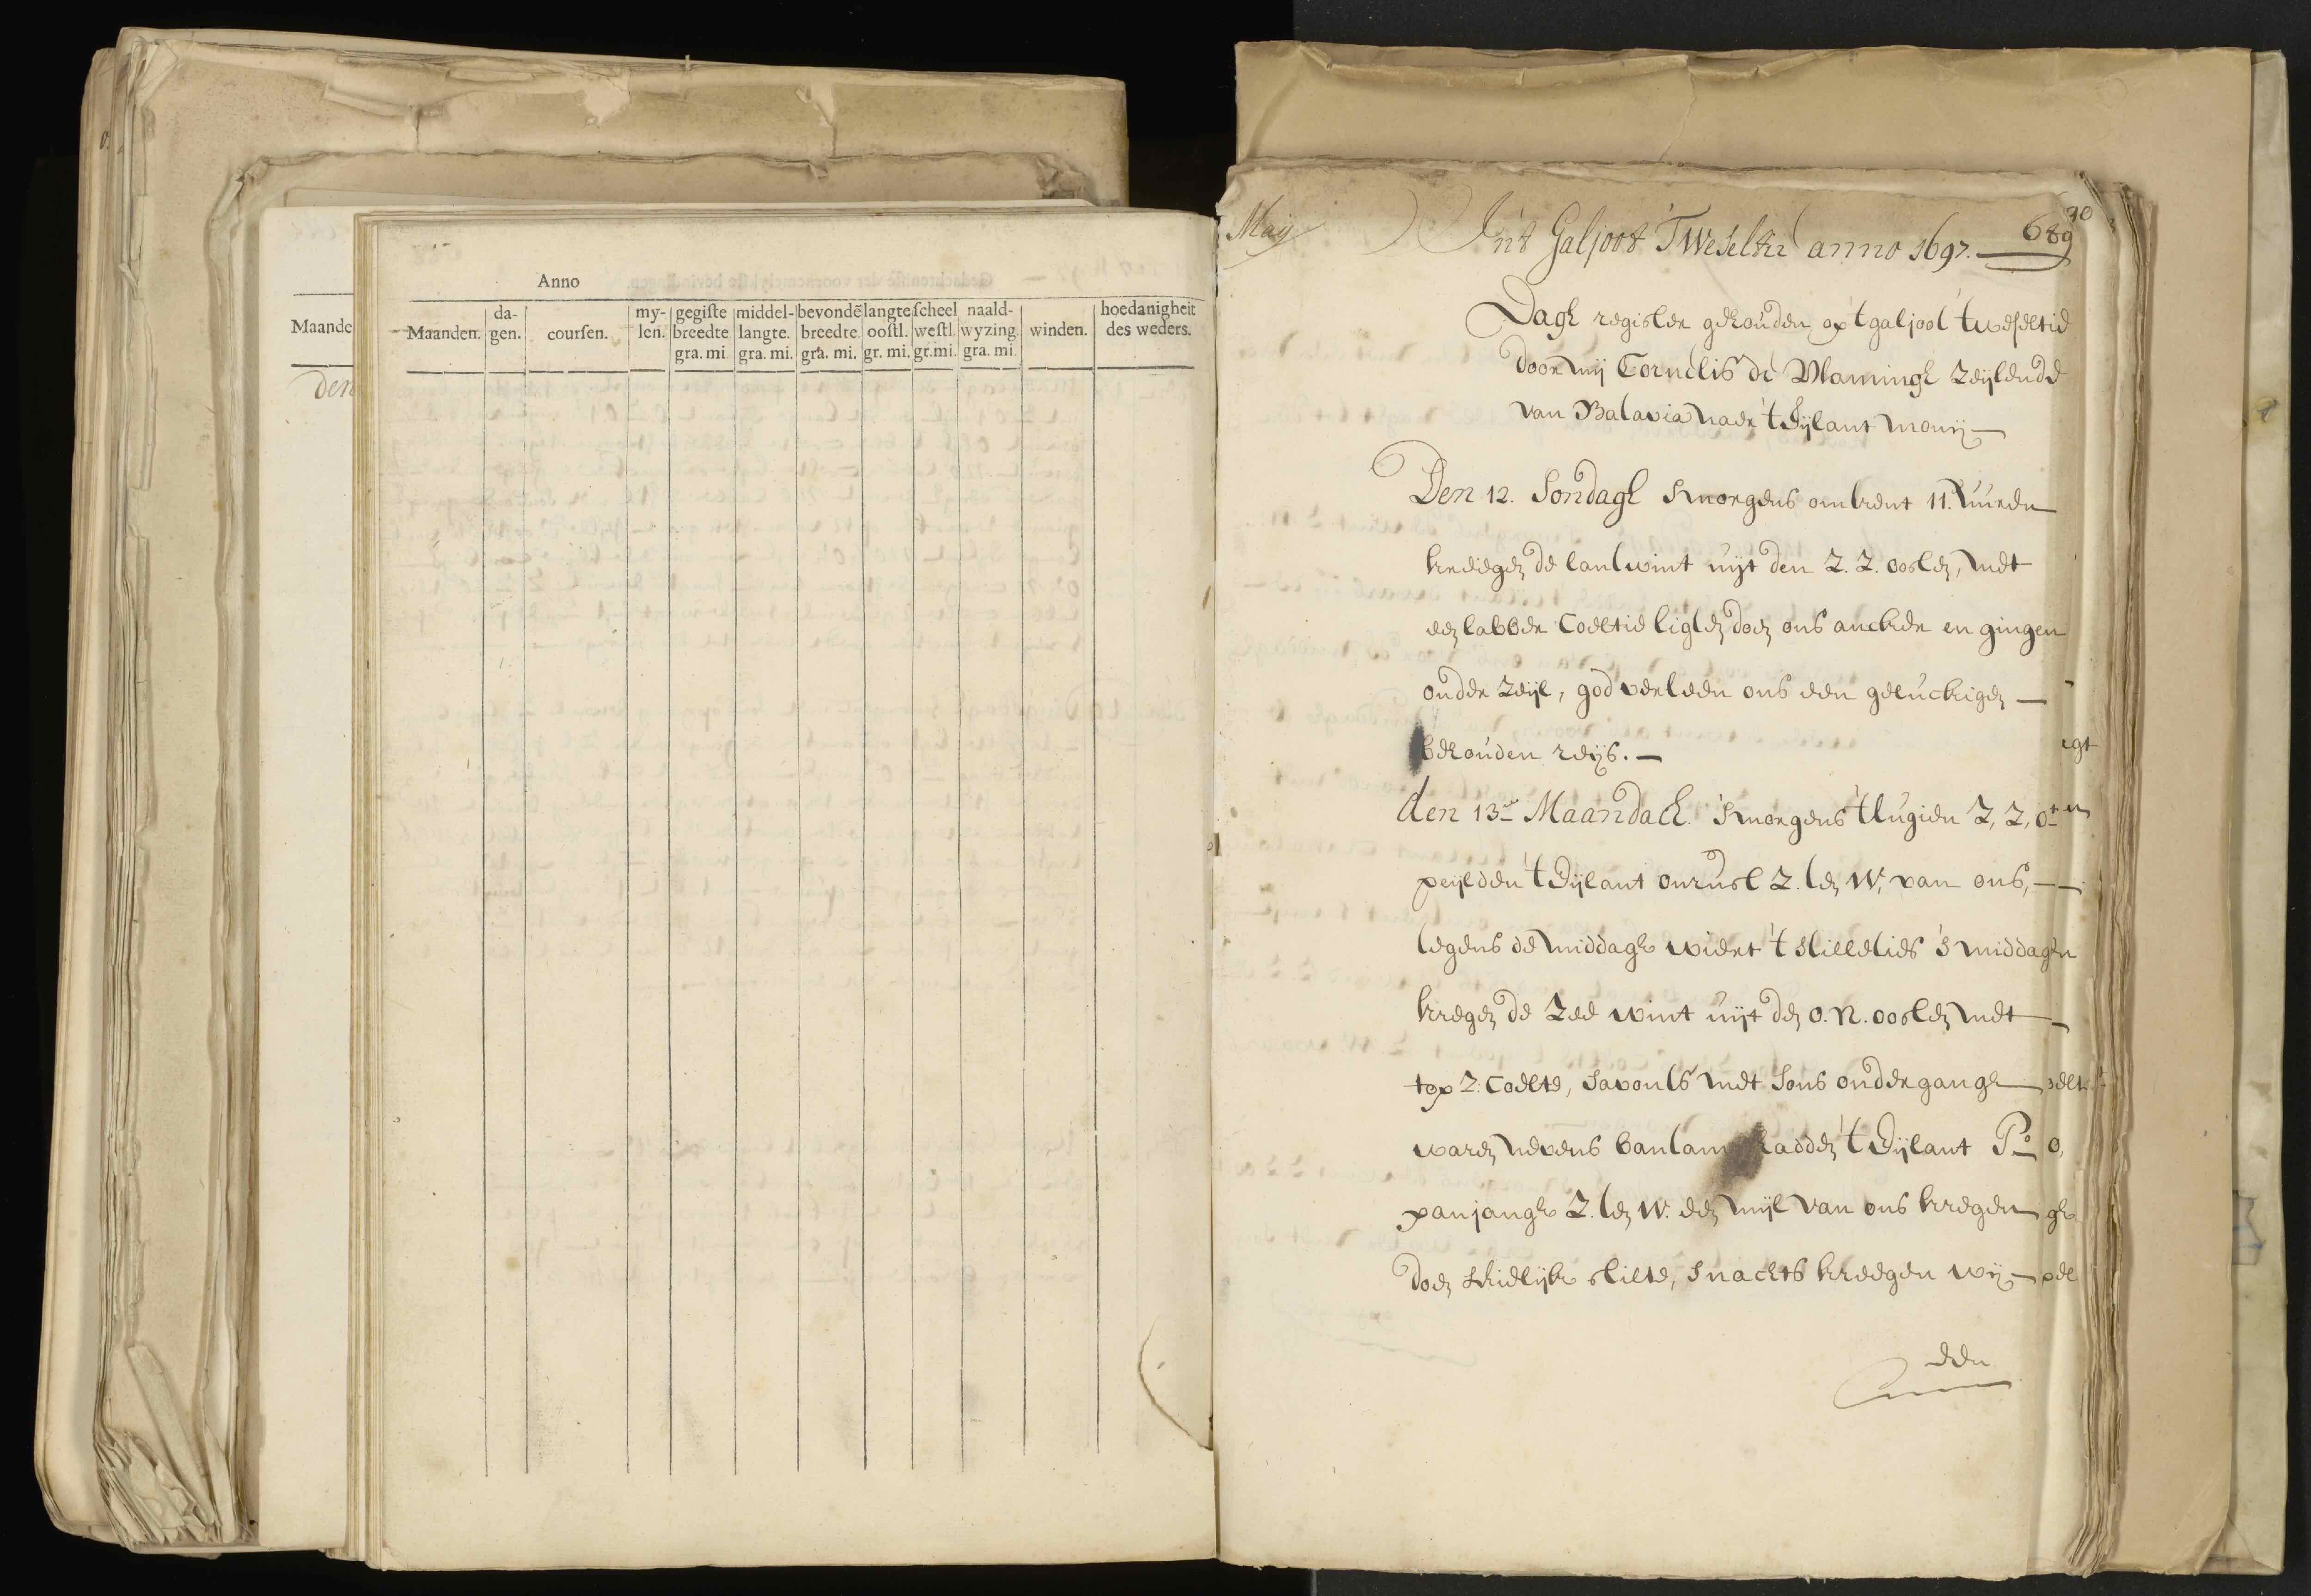 Anno
Maande
Maanden.
da-
gen.
coursen.
my-
len.
gegiste
breedte
gra. mi.
middel-
langte.
gra. mi.
bevondē
breedte.
gra. mi.
langte
oostl.
gr. mi.
scheel
westl.
gr. mi.
naald-
wyzing.
gra. mi.
winden.
hoedanigheit
des weders.
den
May
In't Galjoot T Weseltie anno 1697.
689
Dagh register gehouden op 't galjoot 't weseltie
door mij Cornelis de Vlamingh zeijlende
van Batavia nade 't Eijlant monij
Den 12. Sondagh smorgens ombrent 11. uuren
kreegen de lantwint uijt den Z. Z. oosten, met
een labber Coeltie ligten doen ons ancker en gingen
onder zeijl, god verleen ons een geluckigen
behouden reijs.
den 13en Maandach 'smorgens 't lugien Z, Z, Ot
peijlden 't Eijlant onrust Z. ten W, van ons,
tegens de middagh wiert 't stilleties 's middagen
kregen de Zee wint uijt den O. N. oosten met
top Z. Coelte, savonts met sons ondergangh
waren nevens bantam hadden 't Eijlant Po
panjangh Z. ten W. een mijl van ons kregen
doen schielijk stilte, snachts kreegen wij
een